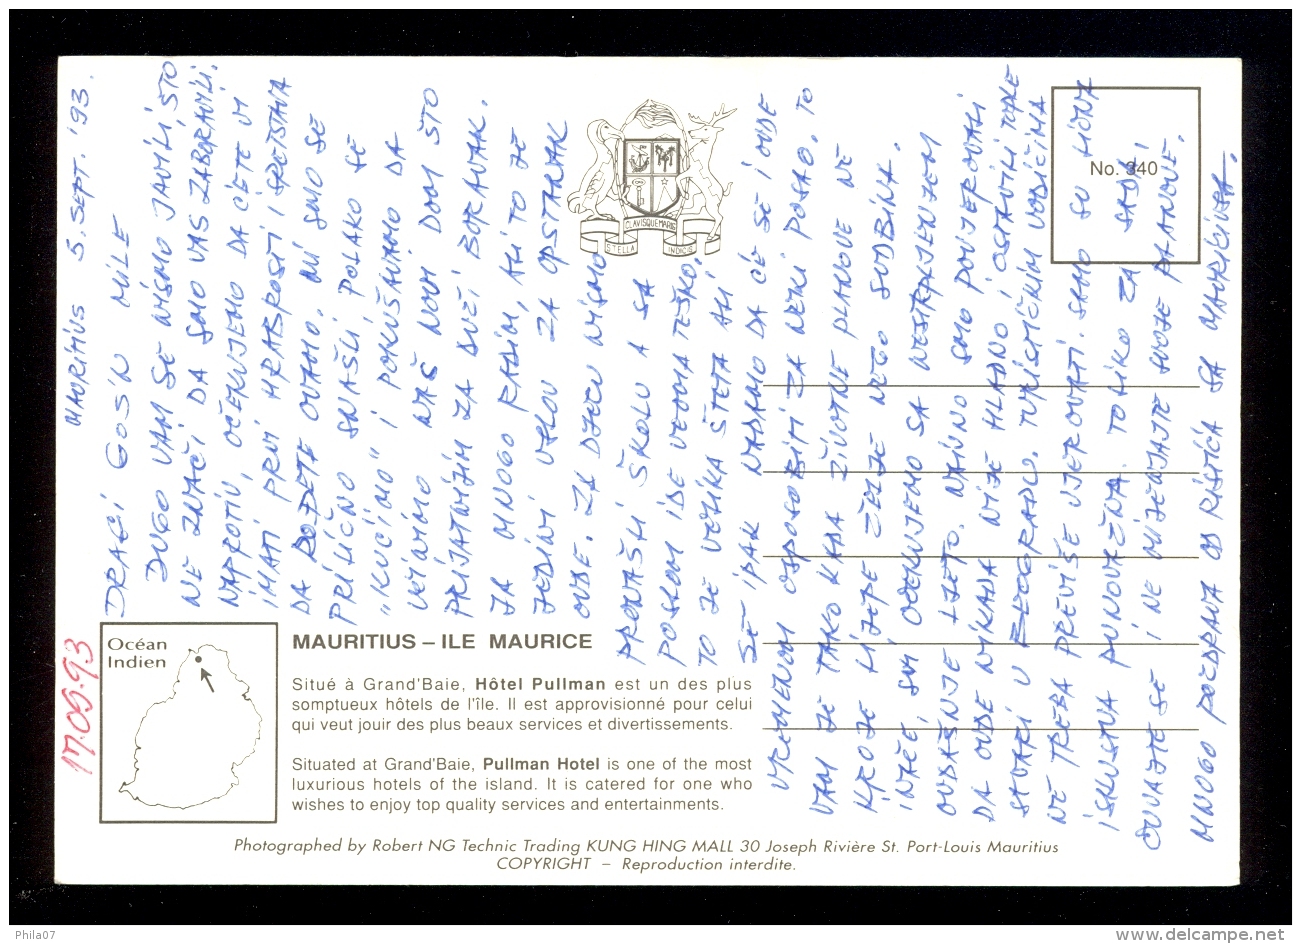 MAURITIUS 5. SEPT. '93.
DRAGI GOS'N MILE
DUGO VAM SE NISMO JAVILI, ŠTO
NE ZNAČI DA SMO VAS ZABORAVILI.
NAPROTIV, OČEKUJEMO DA ĆETE VI
IMATI PRVI HRABROSTI I SREDSTAVA
DA DOĐETE OVAMO. MI SMO SE
PRILIČNO SNAŠLI POLAKO SE
„KUĆIMO" I POKUŠAVAMO DA
UČINIMO NAŠ NOVI DOM ŠTO
PRIJATNIJIM ZA DUŽI BORAVAK.
JA MNOGO RADIM, ALI TO JE
JEDINI USLOV ZA OPSTANAK
OVDE. ZA DJECU NISMO
PRONAŠLI ŠKOLU A SA
POSLOM IDE VEOMA TEŠKO.
TO JE VELIKA ŠTETA ALI
SE IPAK NADAMO DA ĆE SE I OVDE
VREMENOM OSPOSOBITI ZA NEKI POSAO. TO
VAM JE TAKO KADA ŽIVOTNE PLANOVE NE
KROJE LIJEPE ŽELJE NEGO SUDBINA.
INAČE, SVI OČEKUJEMO SA NESTRPLJENJEM
OVDAŠNJE LJETO. NAIVNO SMO POVJEROVALI
DA OVDE NIKADA NIJE HLADNO I OSTAVILI TOPLE
STVARI U BEOGRADU. TURISTIČKIM VODIČIMA
NE TREBA PREVIŠE VJEROVATI. SAMO SU LIČNA
ISKUSTVA PUNOVAŽNA. TOLIKO ZA SADA!
ČUVAJTE SE I NE MIJENJAJTE SVOJE PLANOVE.
MNOGO POZDRAVA OD RISTIĆA SA MAURICIJUSA.
17.09.93
No. 340
STELLA CLAVISQUE MARIS INDICI
Océan
Indien
MAURITIUS – ILE MAURICE
Situé à Grand'Baie, Hôtel Pullman est un des plus
somptueux hôtels de l'île. Il est approvisionné pour celui
qui veut jouir des plus beaux services et divertissements.
Situated at Grand'Baie, Pullman Hotel is one of the most
luxurious hotels of the island. It is catered for one who
wishes to enjoy top quality services and entertainments.
Photographed by Robert NG Technic Trading KUNG HING MALL 30 Joseph Rivière St. Port-Louis Mauritius
COPYRIGHT – Reproduction interdite.
Phila07
delcampe.net